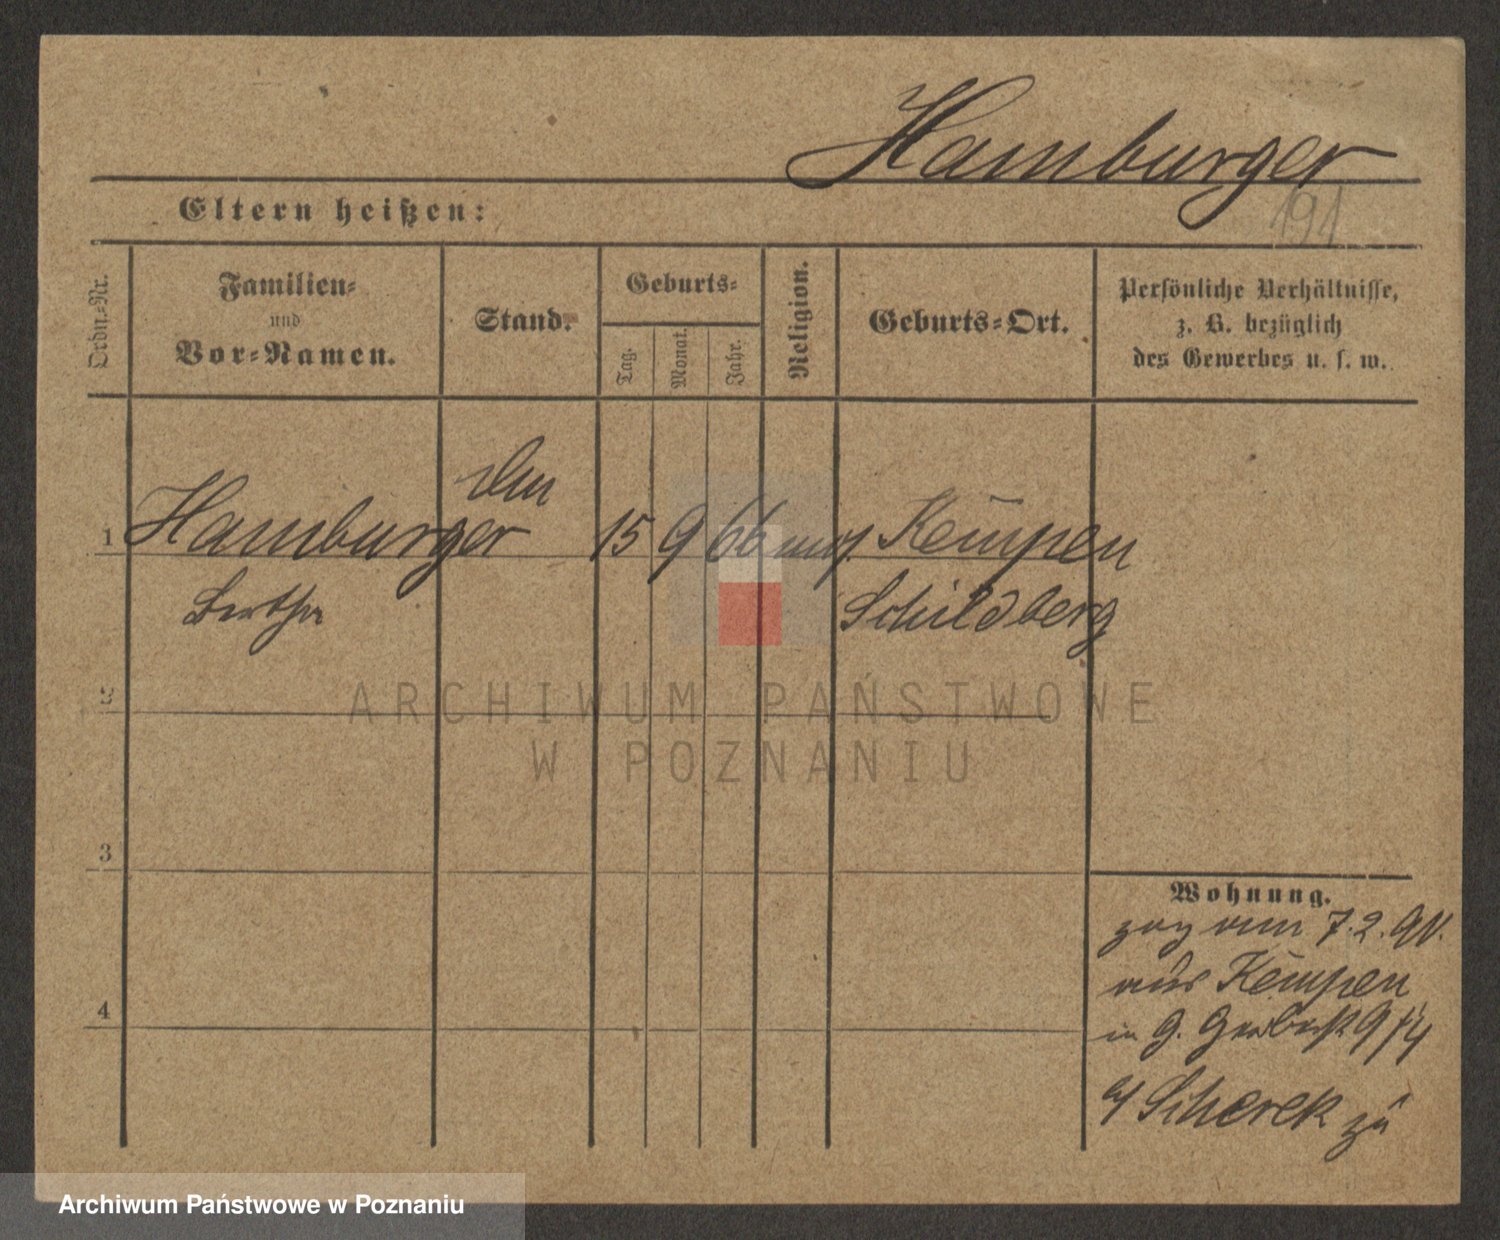 Hamburger
191
Eltern heißen:
Ordn.-Nr.
Familien-
und
Vor-Namen.
Stand.
Geburts-
Tag.
Monat.
Jahr.
Religion.
Geburts-Ort.
Persönliche Verhältnisse,
z. B. bezüglich
des Gewerbes u. s. w.
1 Hamburger 15 9 66 Kempen
Bertha Schildberg
2
3
4
Wohnung.
zog am 7.2.90.
aus Kempen
in G. 9/4
Scherek zu
ARCHIWUM PAŃSTWOWE
W POZNANIU
Archiwum Państwowe w Poznaniu